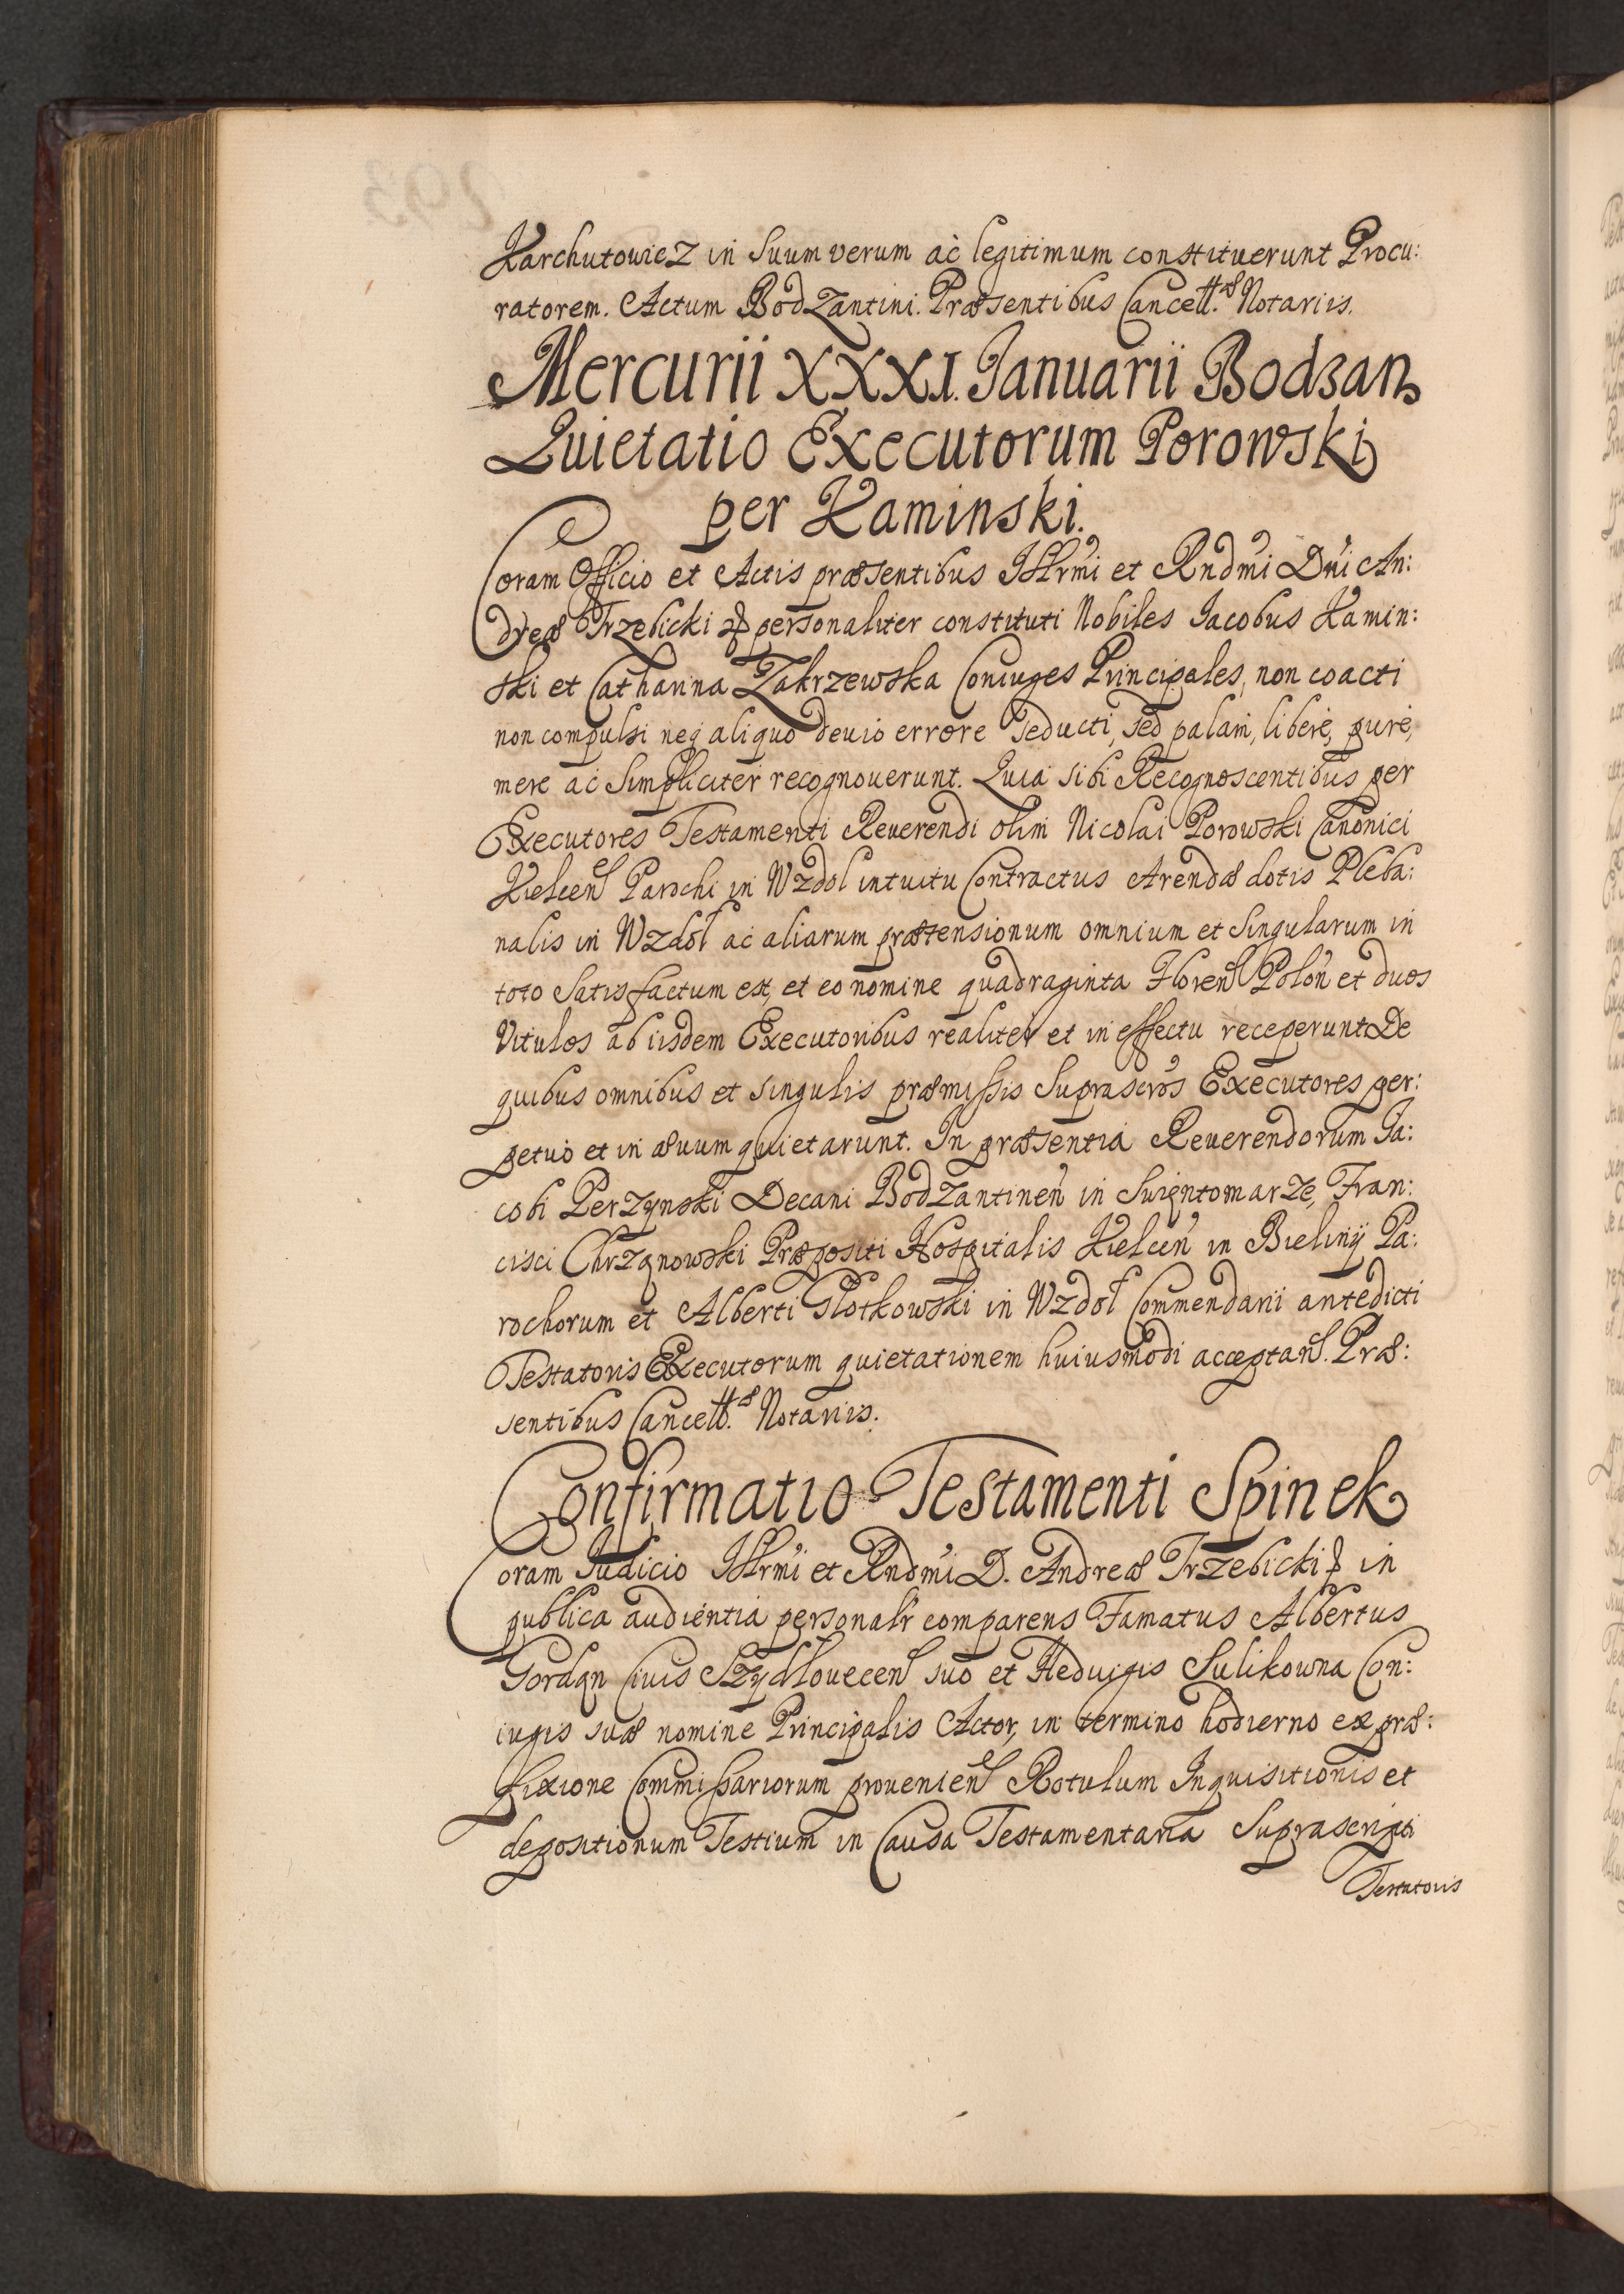 Karchutowicz in Suum verum ac legitimum constituerunt Procu:
ratorem. Actum Bodzantini. Præsentibus Cancell.æ Notariis.
Mercurii XXXI. Januarii Bodzan
Quietatio Executorum Porowski
per Kaminski.
Coram Officio et Actis præsentibus Illrmi et Rndmi Dni An:
dreæ Trzebicki personaliter constituti Nobiles Jacobus Kamin:
ski et Catharina Zakrzewska Coniuges Principales, non coacti
non compulsi neq aliquo deuio errore seducti, sed palam, libere, pure,
mere ac Simpliciter recognouerunt. Quia sibi Recognoscentibus per
Executores Testamenti Reuerendi olim Nicolai Porowski Canonici
Kielcen Parochi in Wzdol intuitu Contractus Arendæ dotis Pleba:
nalis in Wzdol ac aliarum prætensionum omnium et Singularum in
toto Satisfactum est, et eo nomine quadraginta Floren Polon et duos
Vitulos ab iisdem Executoribus realiter et in effectu receperunt De
quibus omnibus et singulis præmissis Suprascros Executores per:
petuo et in æuum quietarunt. In præsentia Reuerendorum Ja:
cobi Perzynski Decani Bodzantinen in Swiętomarze, Fran:
cisci Chrząnowski Præpositi Hospitalis Kielcen in Bieliny Pa:
rochorum et Alberti Plotkowski in Wzdol Commendarii antedicti
Testatoris Executorum quietationem huiusmodi acceptan. Præ:
sentibus Cancell.æ Notariis.
Confirmatio Testamenti Spinek
Coram Judicio Illrmi et Rndmi D. Andreæ Trzebicki in
publica audientia personalr comparens Famatus Albertus
Gordąn Ciuis Szydlouecen suo et Heduigis Sulikowna Con:
iugis suæ nomine Principalis Actor, in termino hodierno ex præ:
fixione Commissariorum prouenien Rotulum Inquisitionis et
depositionum Testium in Causa Testamentaria Suprascripti
Testatoris